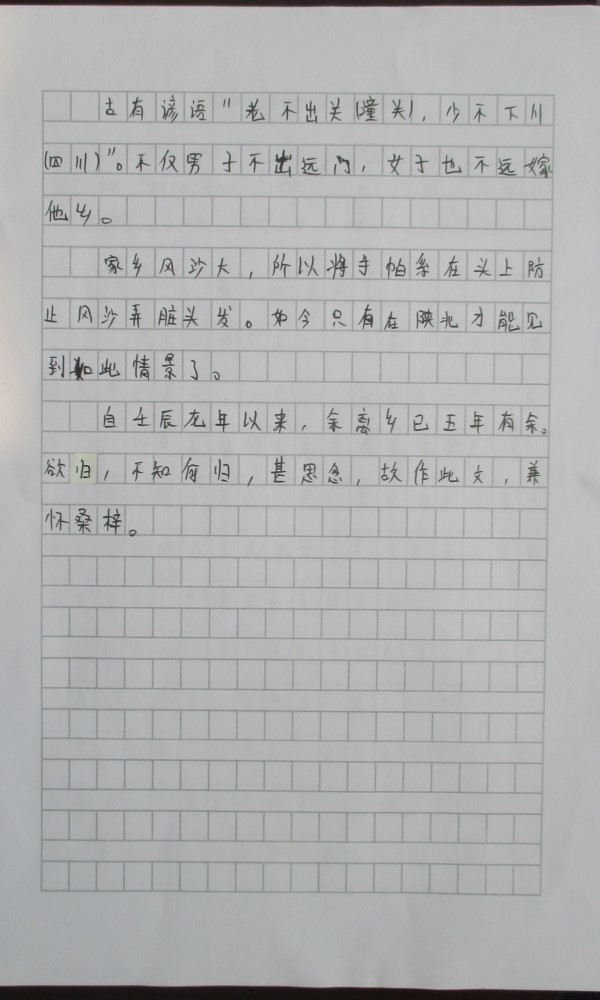 古有谚语"老不出关(潼关)，少不下川
(四川)"。不仅男子不出远门，女子也不远嫁
他乡。
家乡风沙大，所以将手帕系在头上防
止风沙弄脏头发。如今只有在陕北才能见
到如此情景了。
自壬辰龙年以来，余离乡已五年有余。
欲归，不知何归，甚思念，故作此文，兼
怀桑梓。